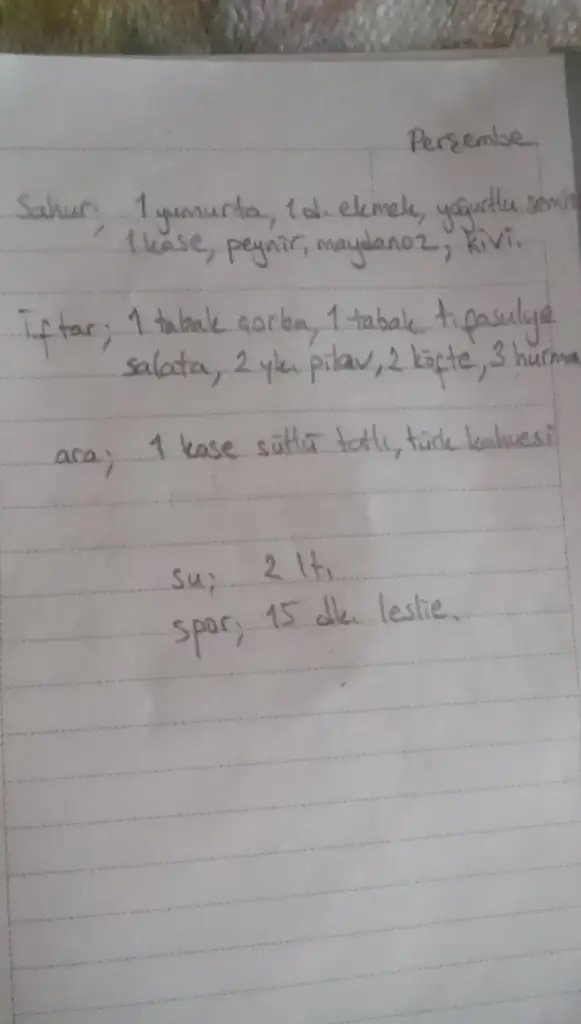 Perşembe
Sahur; 1 yumurta, 1 d. ekmek, yoğurtlu semiz
1 kase, peynir, maydanoz, kivi.
İftar; 1 tabak çorba, 1 tabak t. fasulye
salata, 2 yk. pilav, 2 köfte, 3 hurma
ara; 1 kase sütlü tatlı, türk kahvesi
su; 2 lt.
spor; 15 dk. leslie.